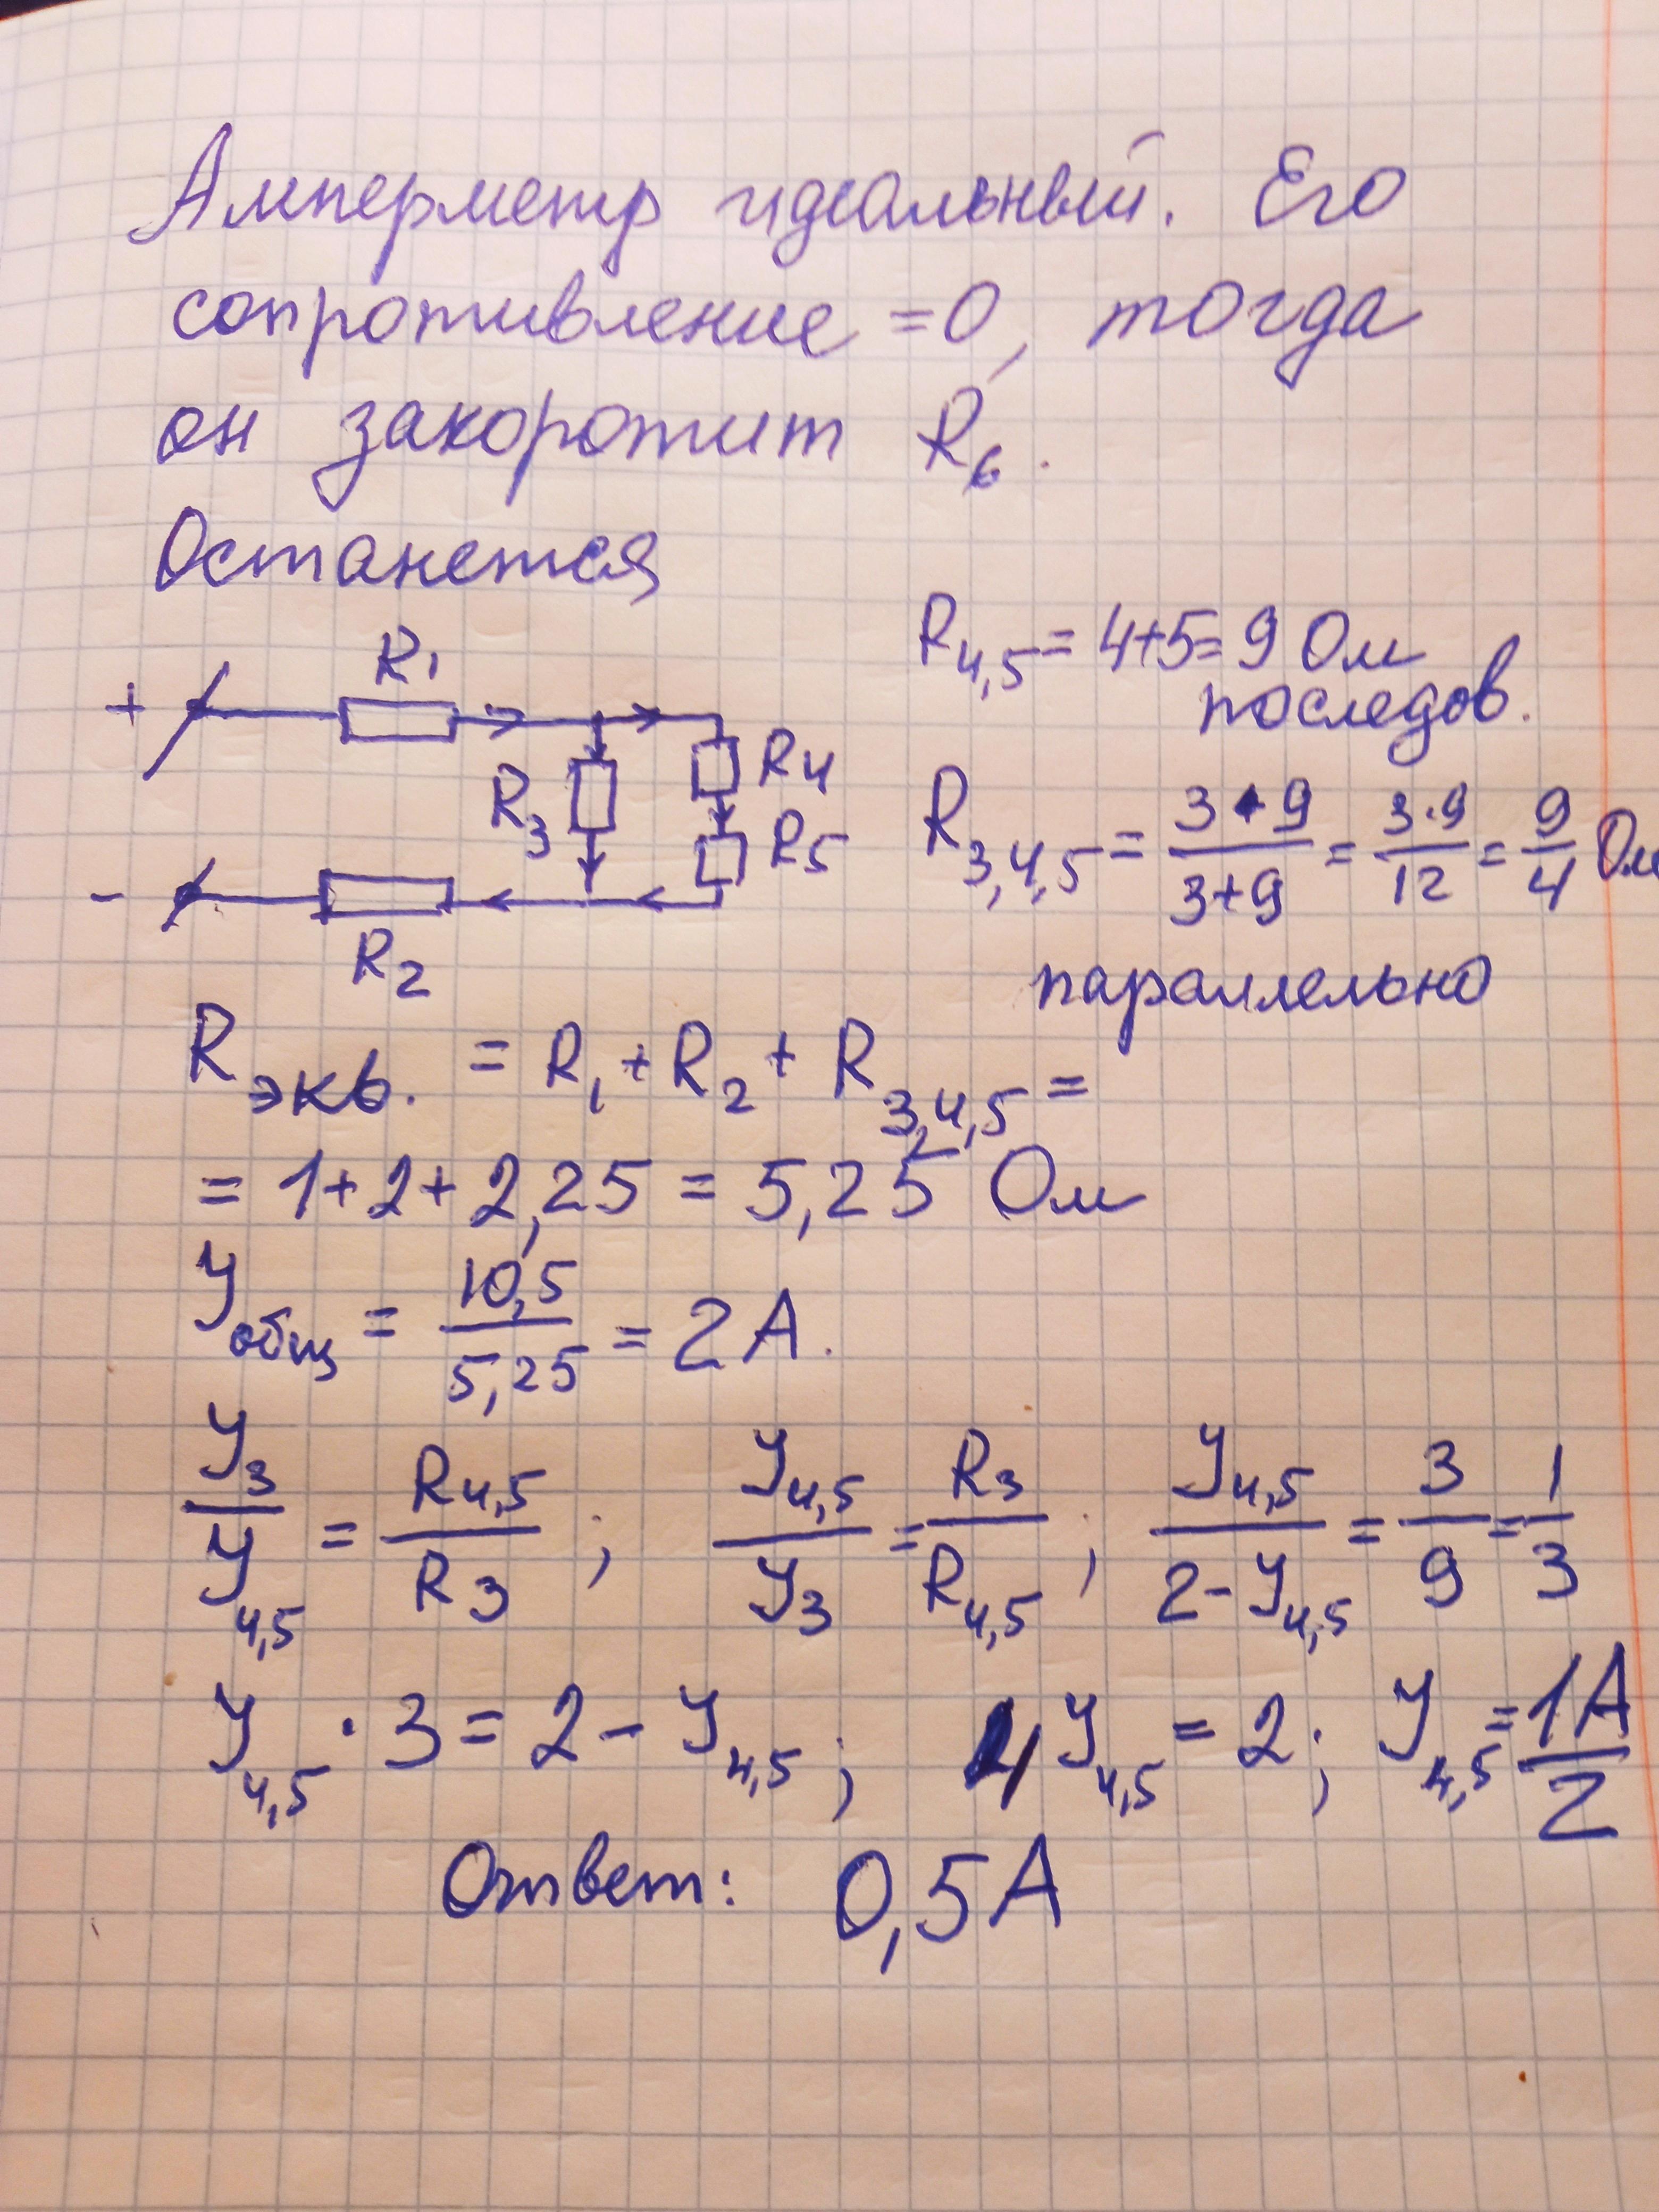 Амперметр идеальный. Его
сопротивление =0, тогда
он закоротит R₆.
Останется
R₄,₅ = 4+5 = 9 Ом
последов.
+ R₁
R₃ R₄
R₅
- R₂
R₃,₄,₅ = (3·9)/(3+9) = (3·9)/12 = 9/4 Ом
параллельно
Rэкв. = R₁ + R₂ + R₃,₄,₅ =
= 1+2+2,25 = 5,25 Ом
Yобщ = 10,5/5,25 = 2 А.
Y₃/Y₄,₅ = R₄,₅/R₃ ; Y₄,₅/Y₃ = R₃/R₄,₅ ; Y₄,₅/(2-Y₄,₅) = 3/9 = 1/3
Y₄,₅ · 3 = 2 - Y₄,₅ ; 4 Y₄,₅ = 2 ; Y₄,₅ = 1А/2
Ответ: 0,5 А